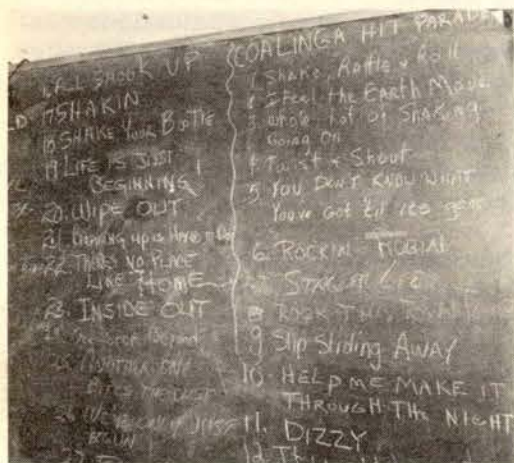 COALINGA HIT PARADE
1. Shake, Rattle & Roll
2. I feel the Earth Move
3. Whole Lot of Shaking
Going On
4. Twist & Shout
5. YOU DON'T KNOW WHAT
You've Got til its gone
6. ROCKIN ROBIN
ROCK THIS TOWN
9 Slip Sliding AWAY
10. HELP ME MAKE IT
THROUGH THE NIGHT
11. DIZZY
12.
ALL SHOOK UP
17 SHAKIN
18 SHAKE YOUR BOOTIE
19 LIFE IS JUST
BEGINNING
20. WIPE OUT
21. up is Hard to Do
22. THERES NO PLACE
LIKE HOME
23. INSIDE OUT
ANOTHER ONE
BITES THE DUST
WE'VE ONLY JUST
BEGUN
27.